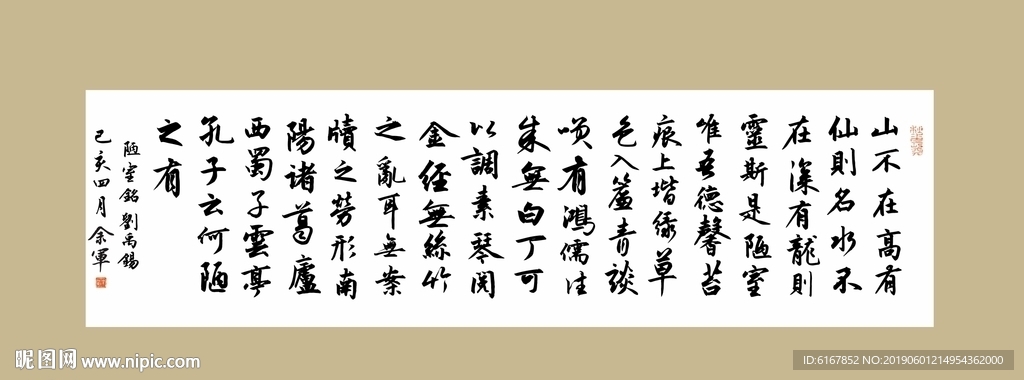 山不在高有
仙則名水不
在深有龍則
靈斯是陋室
唯吾德馨苔
痕上堦綠草
色入簾青談
咲有鴻儒往
來無白丁可
以調素琴閱
金經無絲竹
之亂耳無案
牘之勞形南
陽諸葛廬
西蜀子雲亭
孔子云何陋
之有
陋室銘劉禹錫
己亥四月余軍
昵图网 www.nipic.com
ID:6167852 NO:20190601214954362000